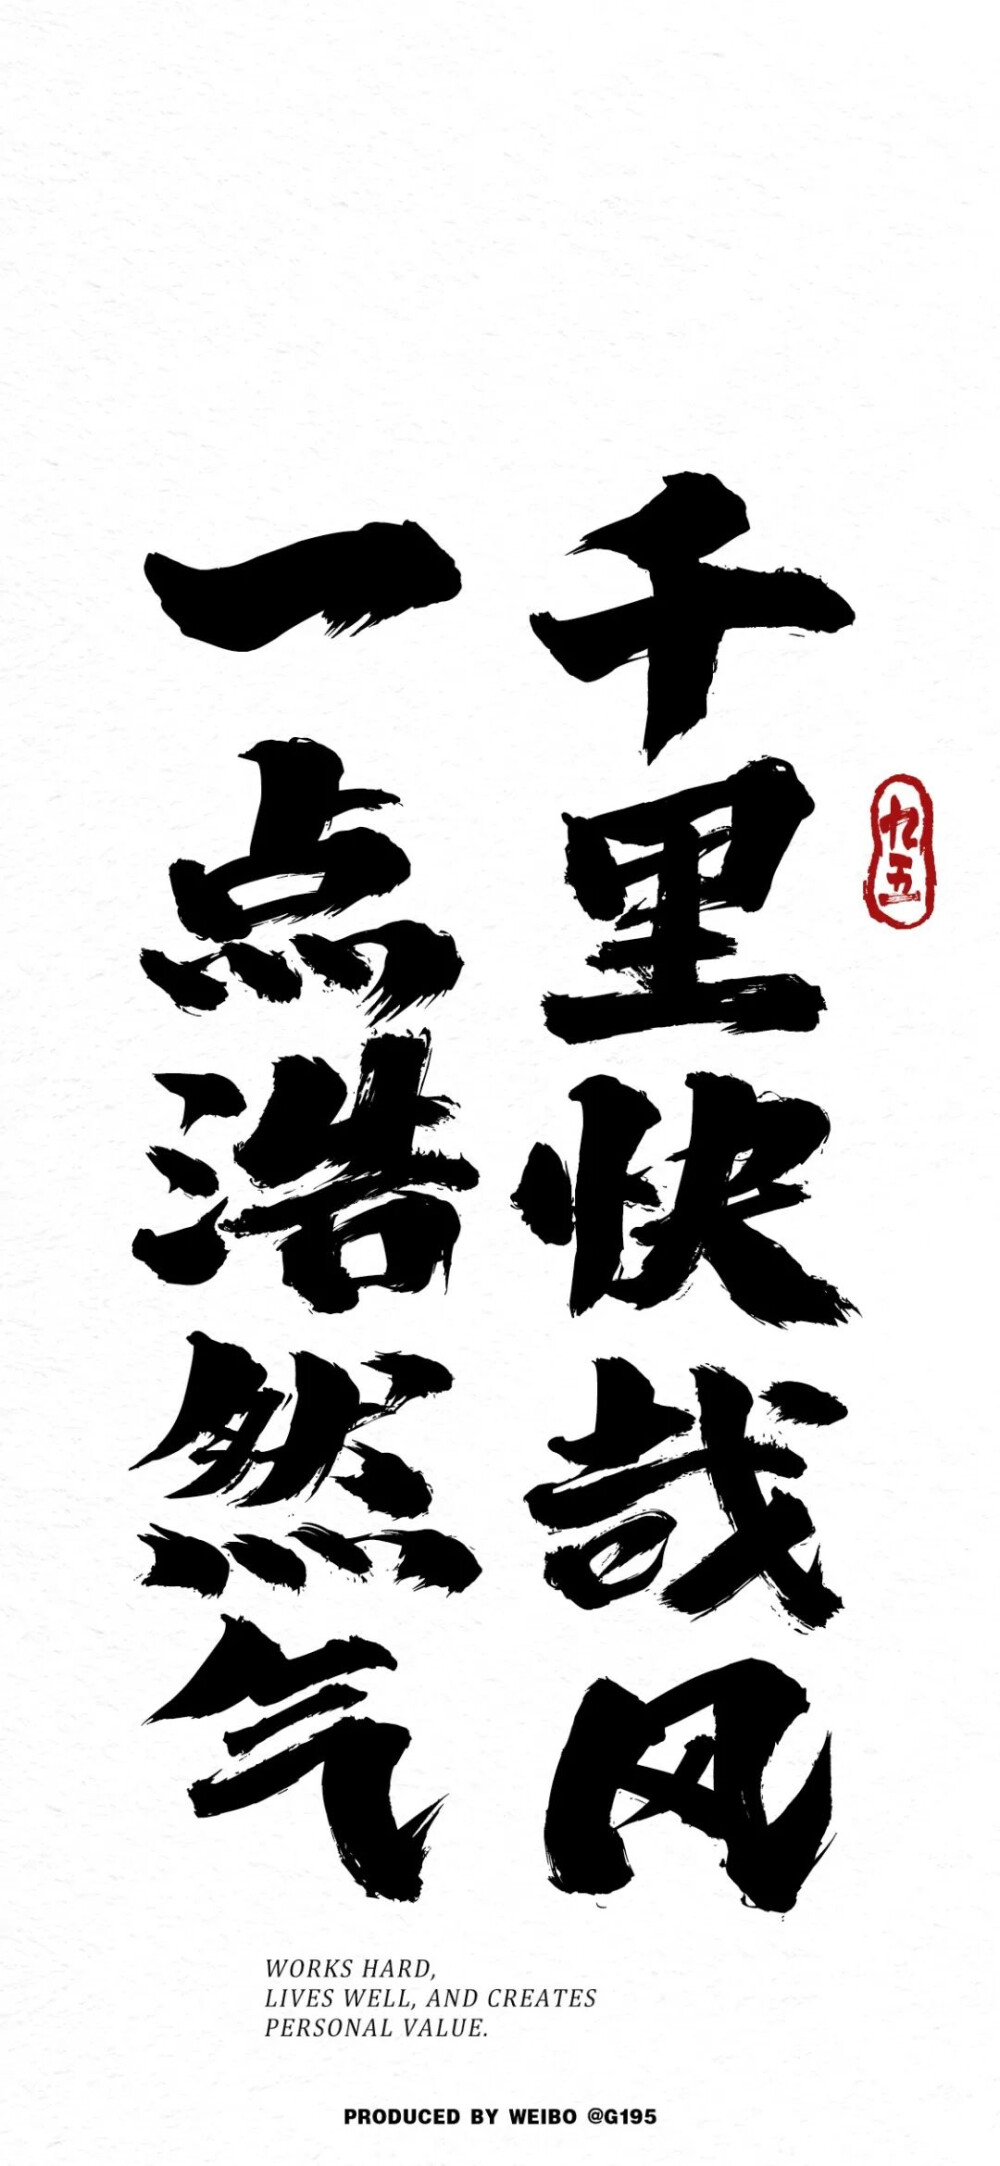 一点浩然气
千里快哉风
九五
WORKS HARD,
LIVES WELL, AND CREATES
PERSONAL VALUE.
PRODUCED BY WEIBO @G195